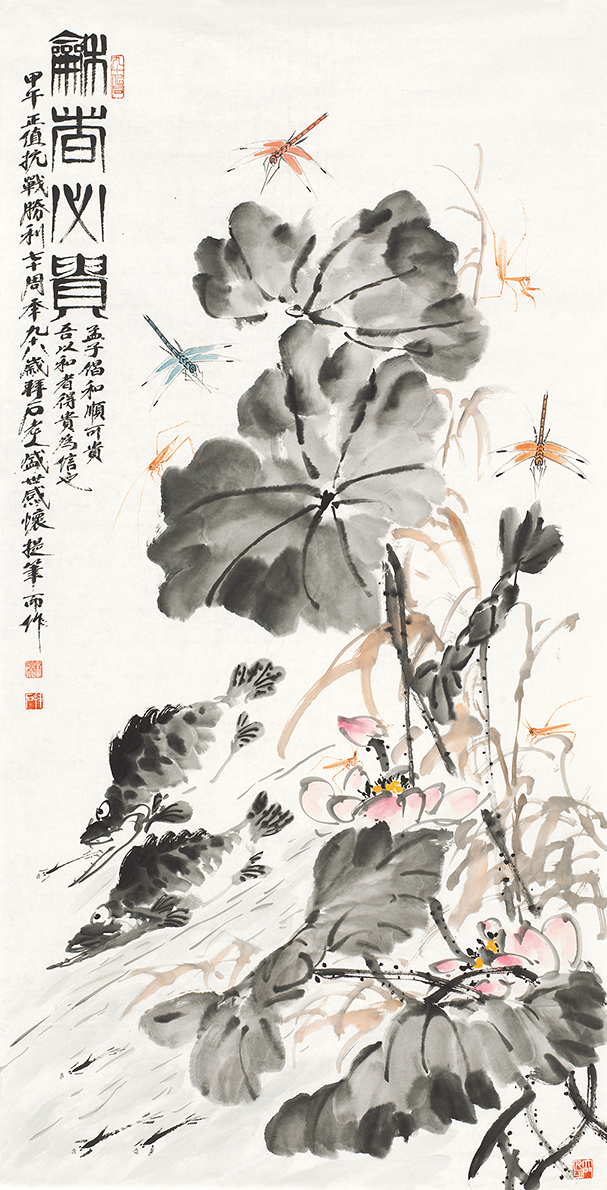 龢者必貴
孟子倡和順可貴
吾以和者得貴為信也
甲午正值抗戰勝利七十周年九十八歲拜石老人盛世感懷提筆而作